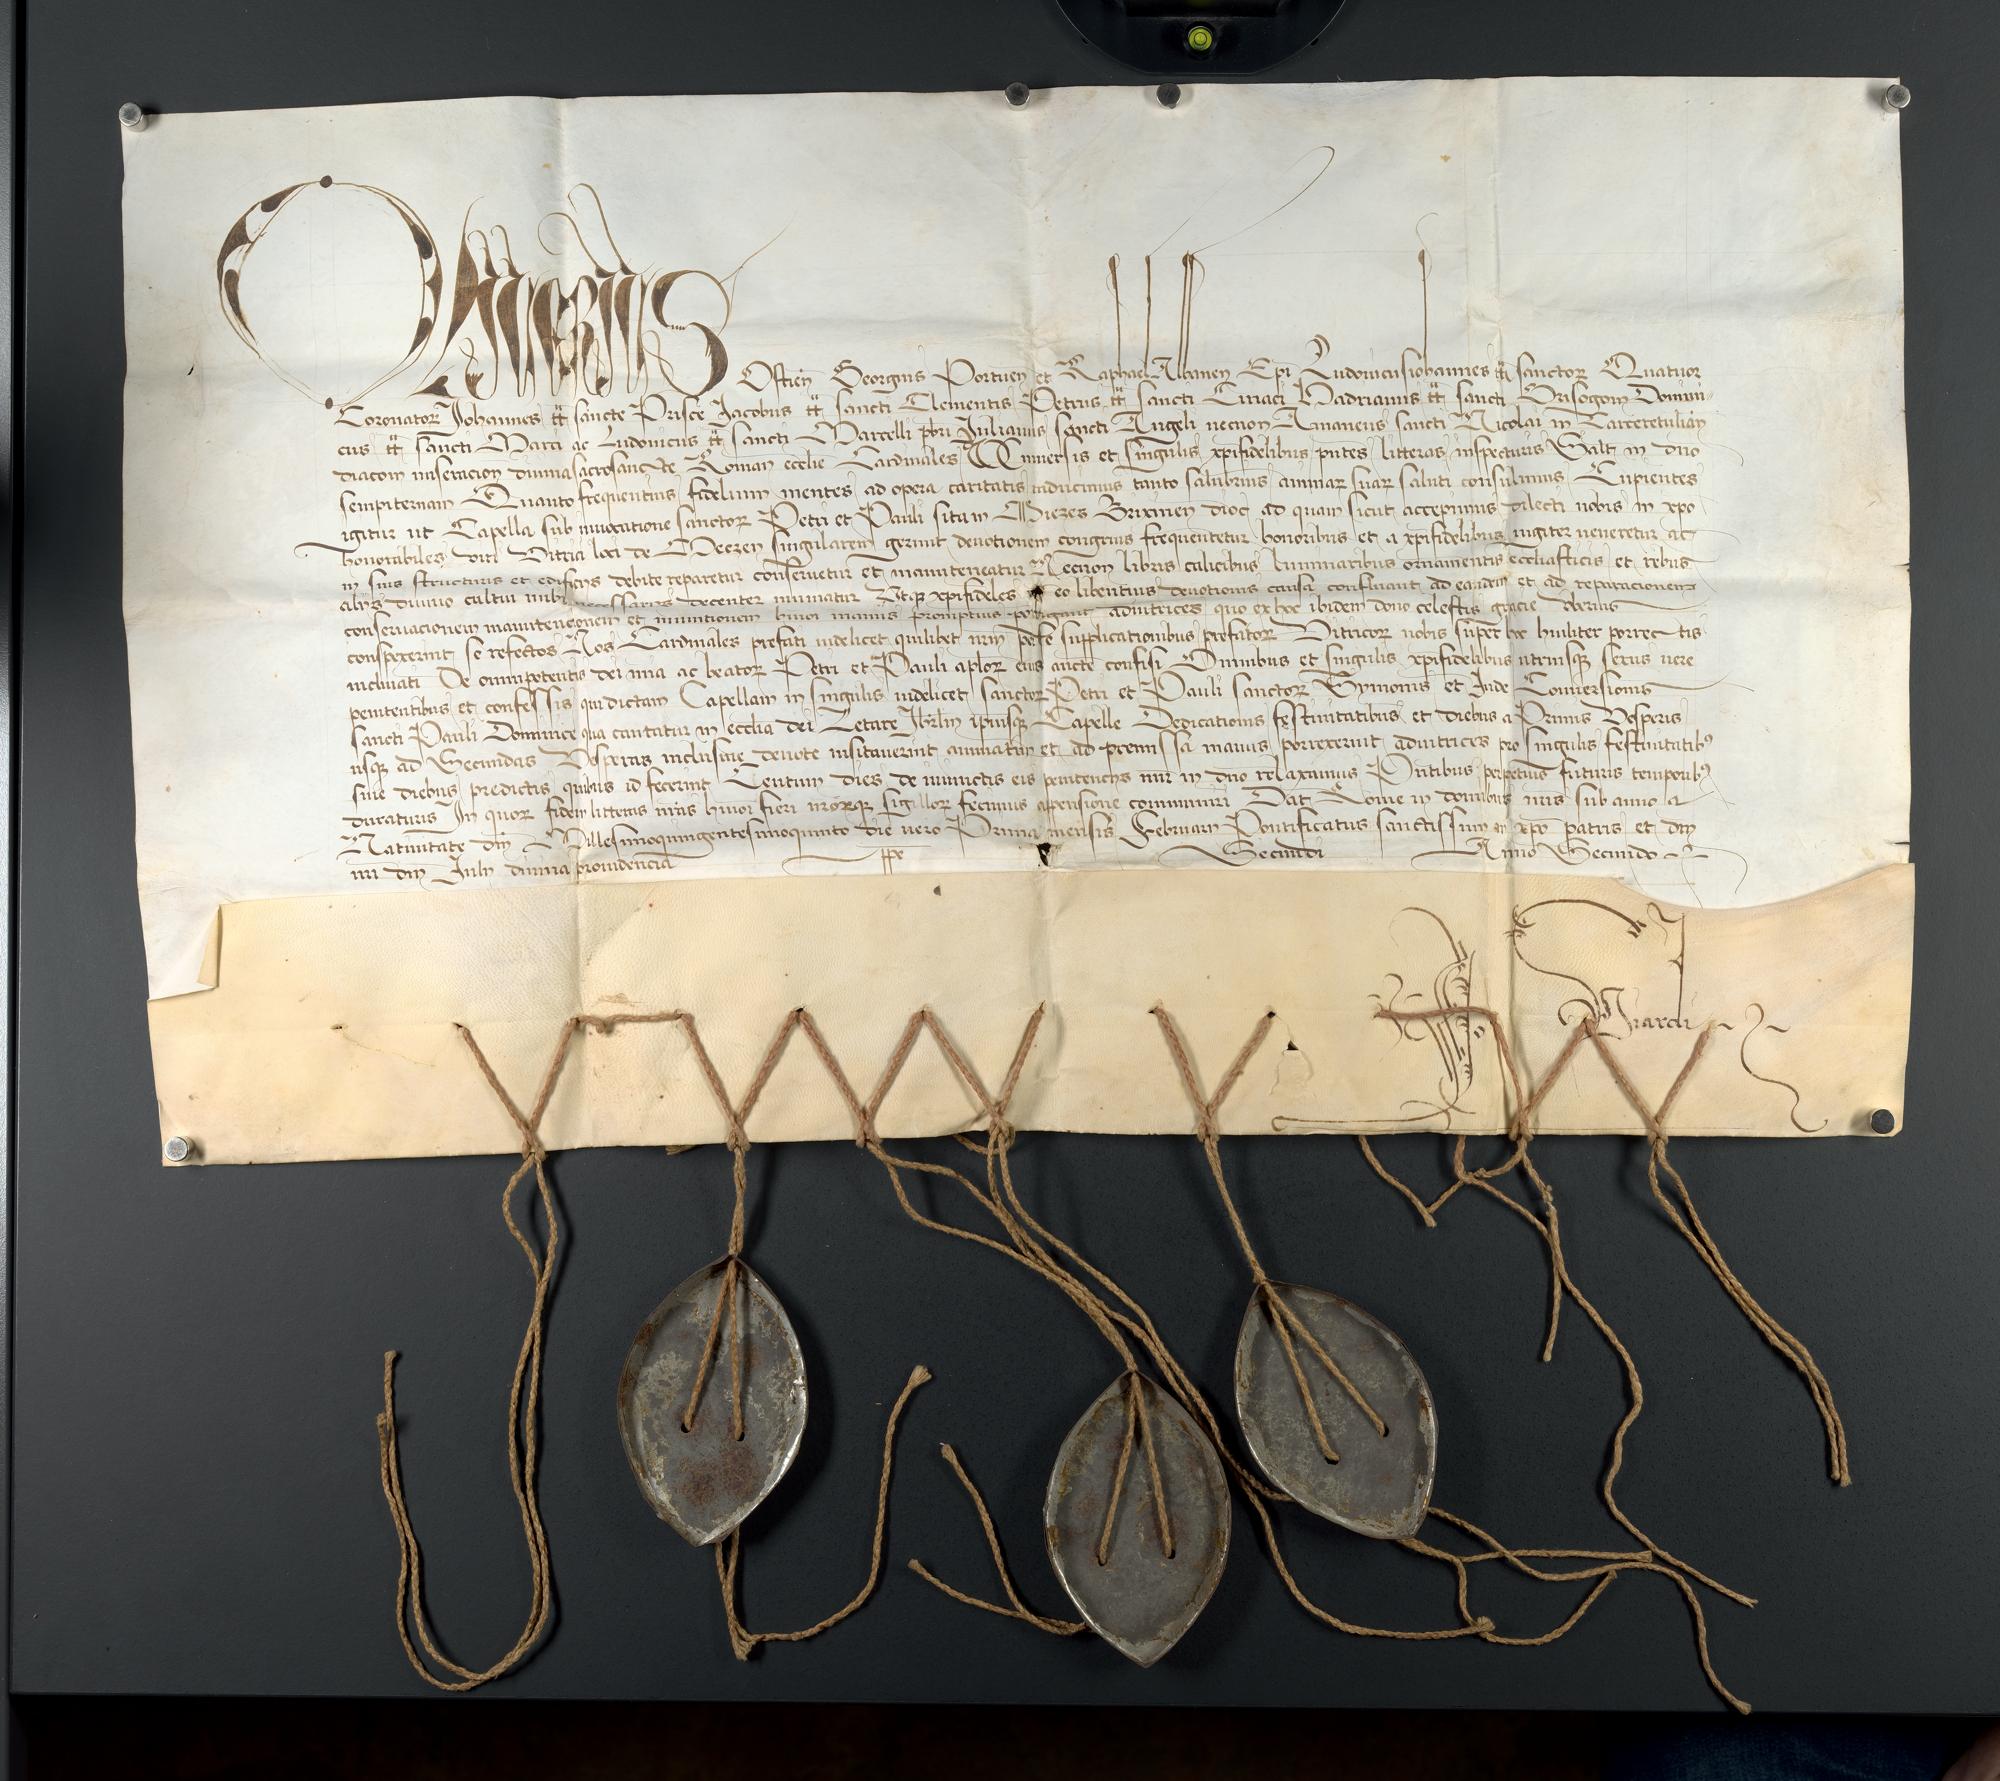 Oliverius
Ostien Georgius Portuen et Raphael Albanen Epi Ludovicusiohannes tt sanctor Quatuor
Coronator Johannes tt sancte Prisce Jacobus tt sancti Clementis Petrus tt sancti Ciriaci Hadrianus tt sancti Grisogoni Domini-
cus tt sancti Marci ac Ludovicus tt sancti Marcelli pbri Julianus sancti Angeli necnon Amaneus sancti Nicolai in Carceretulian
diaconi miseracion divina sacrosancte Roman ecclie Cardinales Universis et singulis xpifidelibus pntes litteras inspecturis Salt in dno
sempiternam Quanto frequentius fidelium mentes ad opera caritatis inducimus tanto salubrius animar suar saluti consulimus Cupientes
igitur ut Capella sub invocatione sanctor Petri et Pauli sita in Miezes Brixinen dioc ad quam sicut accepimus dilecti nobis in xpo
honorabiles viri Vitrici loci de Meezen singularem gerunt devotionem congruis frequentetur honoribus et a xpifidelibus iugiter veneretur ac
in suis structuris et edificijs debite reparetur conservetur et manuteneatur Necnon libris calicibus luminaribus ornamentis eccliasticis et rebus
alijs divino cultui inibi necessarijs decenter muniatur Utq xpifideles eo libentius devotionis causa confluant ad eandem et ad reparacionem
conservacionem manutencionem et munitionem hmoi manus promptius porrigant adiutrices quo ex hoc ibidem dono celestis gracie uberius
conspexerint se refectos Nos Cardinales prefati videlicet quilibet nrm per se supplicationibus prefator Vitricor nobis super hoc humiliter porrectis
inclinati De omnipotentis dei mia ac beator Petri et Pauli aplor eius aucte confisi Omnibus et singulis xpifidelibus utriusq sexus vere
penitentibus et confessis qui dictam Capellam in singulis videlicet sanctor Petri et Pauli sanctor Symonis et Jude Conversionis
sancti Pauli Dominice qua cantatur in ecclia dei Letare Jhrlm ipsiusq Capelle Dedicationis festivitatibus et diebus a Primis Vesperis
usq ad Secundas Vesperas inclusive devote visitaverint annuatim et ad premissa manus porrexerint adiutrices pro singulis festivitatibus
sive diebus predictis quibus id fecerint Centum dies de iniunctis eis penitencijs mir in dno relaxamus Pntibus perpetuis futuris temporibus
duraturis In quor fidem litteras nras hmoi fieri nrorq sigillor fecimus appensione communiri Dat Rome in domibus nris sub anno a
Nativitate dni Millesimoquingentesimoquinto die vero Prima mensis Februarii Pontificatus sanctissimi in xpo patris et dni
nri dni Julij divina providencia ppe Secundi Anno Secundo